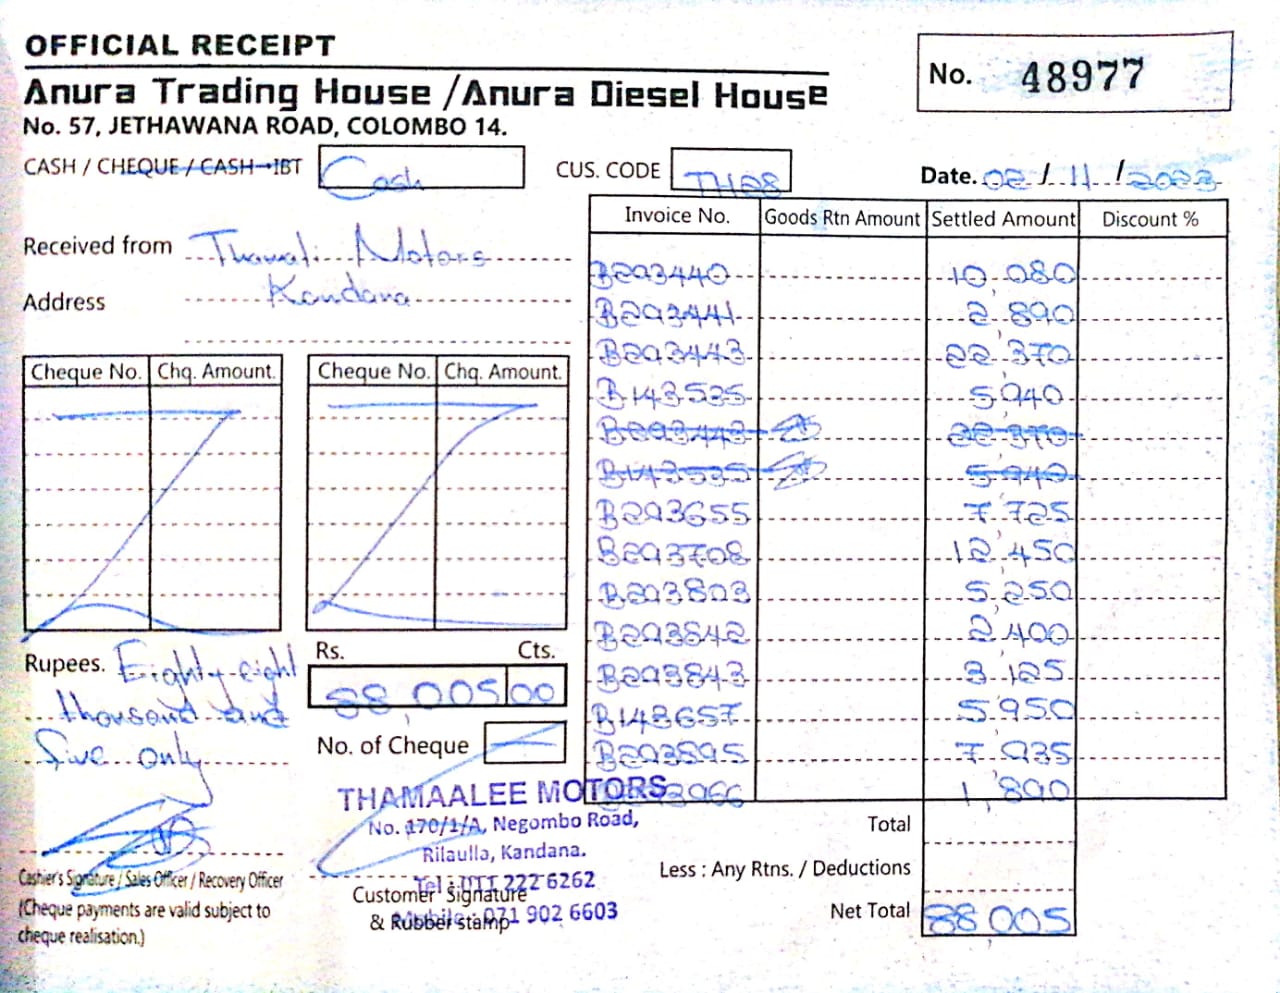 OFFICIAL RECEIPT
Anura Trading House / Anura Diesel House
No. 57, JETHAWANA ROAD, COLOMBO 14.
No. 48977
CASH / CHEQUE / CASH IBT Cash
CUS. CODE TH28
Date. 02 / 11 / 2023
Received from Thamali Motors
Address Kandana
Cheque No. Chq. Amount.
Cheque No. Chq. Amount.
Invoice No. Goods Rtn Amount Settled Amount Discount %
B293440 10,080
B293441 2,890
B293443 22,370
B143535 5,940
B293443 22,370
B143535 5,940
B293655 7,725
B293708 12,450
B293803 5,250
B293842 2,400
B293843 3,125
B143657 5,950
B293895 7,935
1,890
Rupees. Eighty eight
thousand and
five only
Rs. Cts.
88,005 00
No. of Cheque
THAMAALEE MOTORS
No. 170/1/A, Negombo Road,
Rilaulla, Kandana.
Tel : 011 222 6262
Mobile : 071 902 6603
Cashier's Signature / Sales Officer / Recovery Officer
(Cheque payments are valid subject to
cheque realisation.)
Customer Signature
& Rubber stamp
Total
Less : Any Rtns. / Deductions
Net Total 88,005